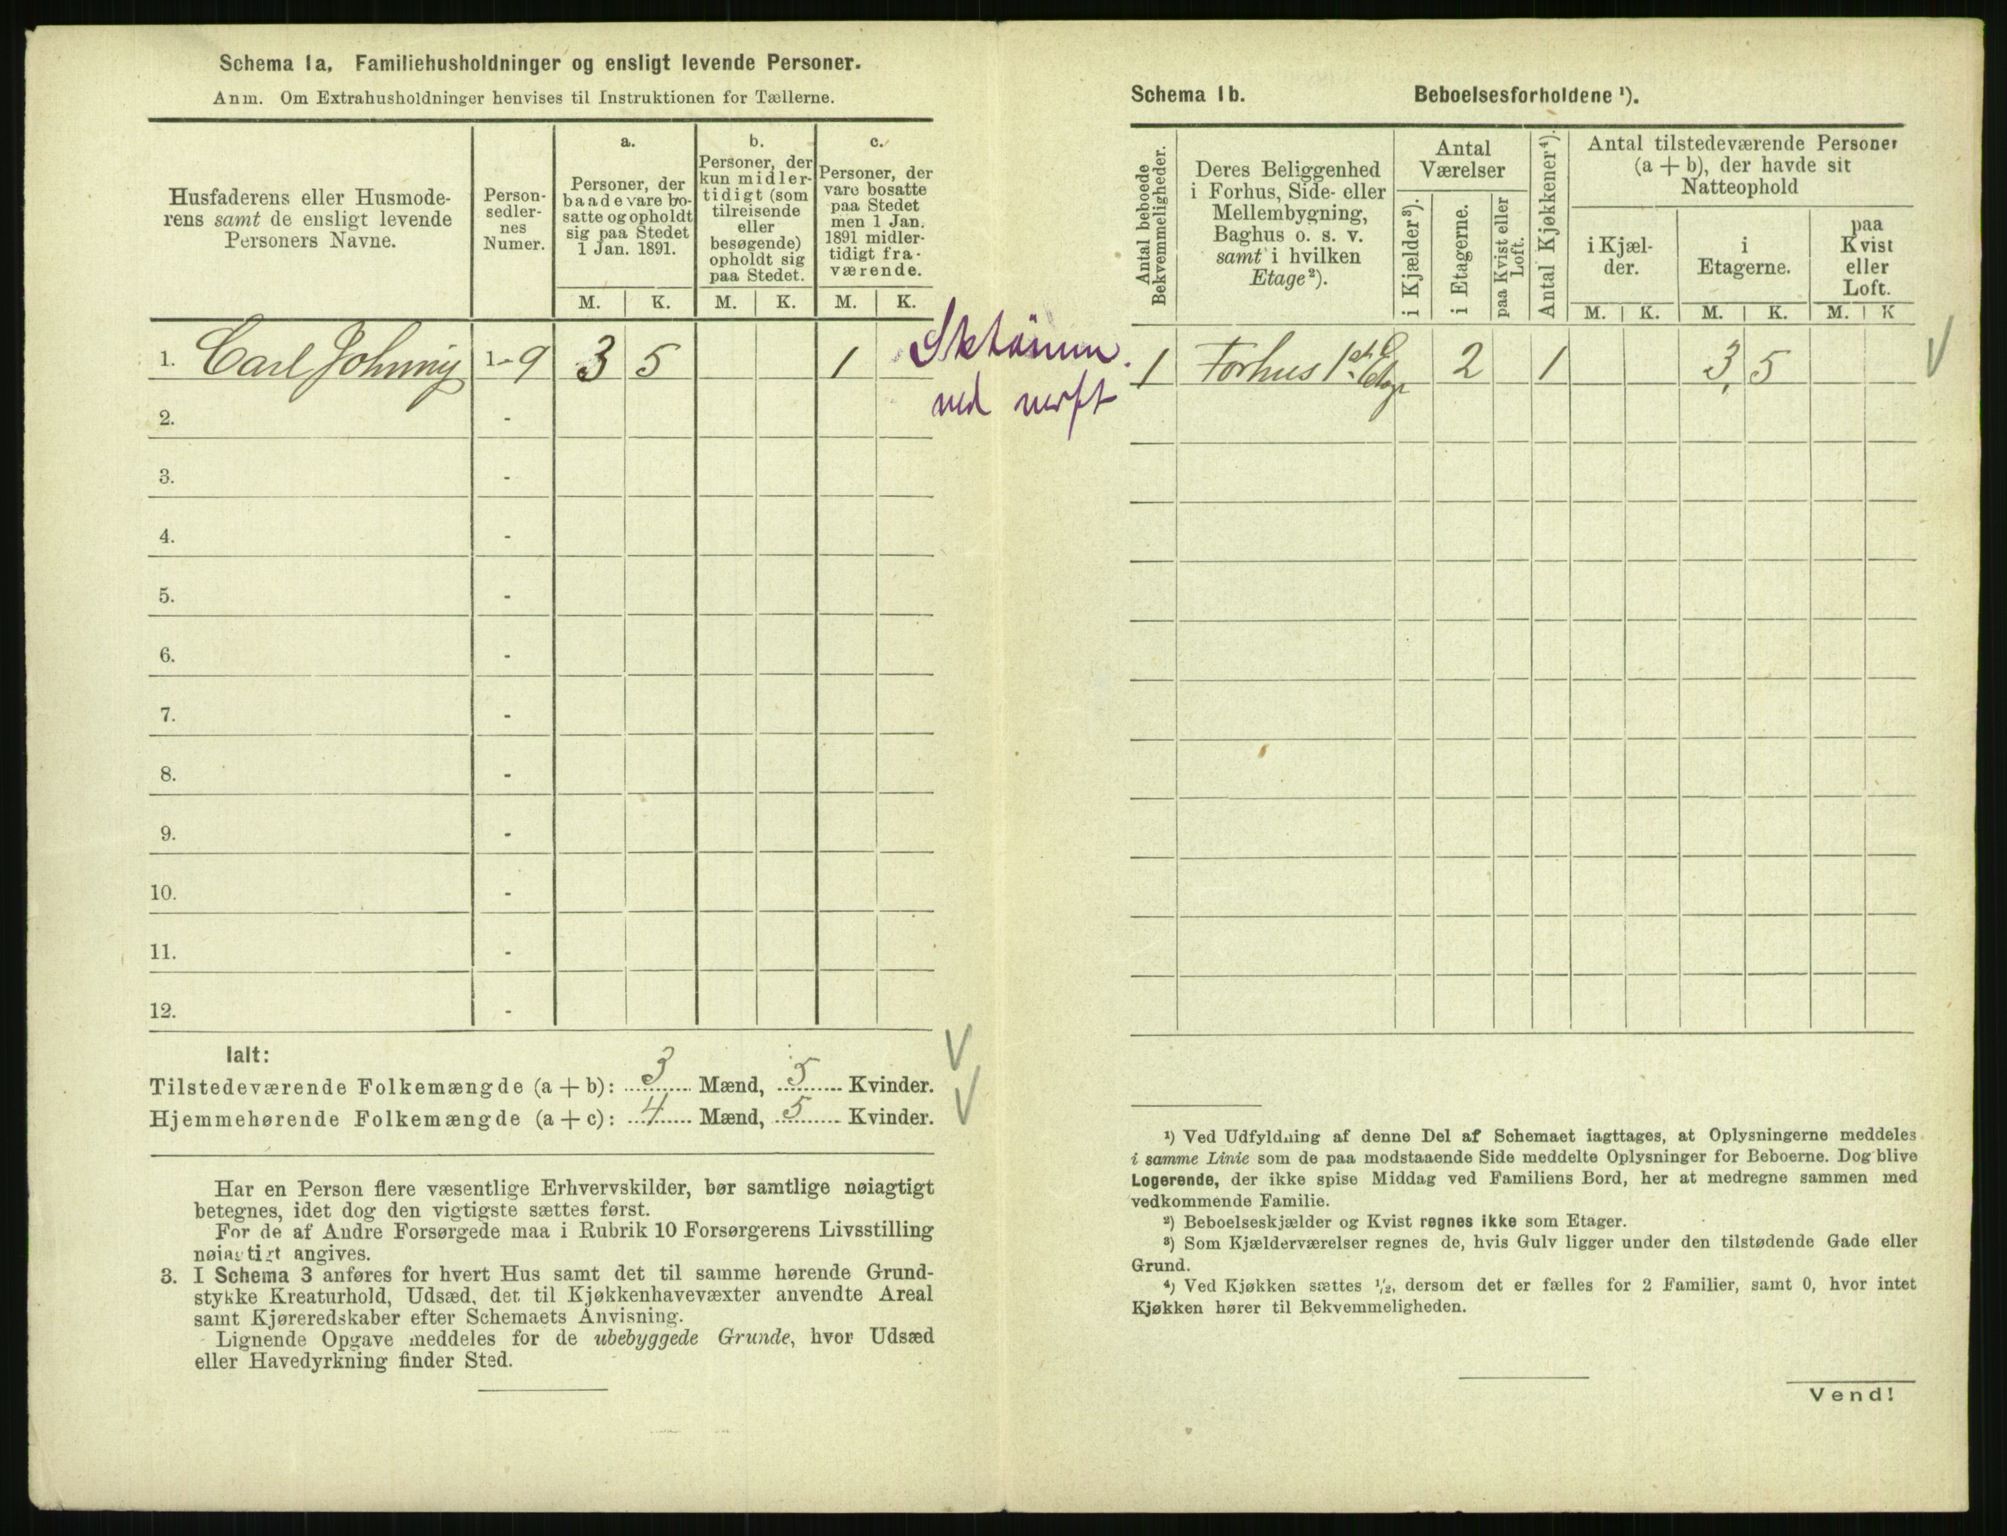 Schema 1a, Familiehusholdninger og ensligt levende Personer.
Anm. Om Extrahusholdninger henvises til Instruktionen for Tællerne.
Husfaderens eller Husmode-
rens samt de ensligt levende
Personers Navne.
Person-
sedler-
nes
Numer.
a.
Personer, der
baade vare bo-
satte og opholdt
sig paa Stedet
1 Jan. 1891.
M. K.
b.
Personer, der
kun midler-
tidigt (som
tilreisende
eller
besøgende)
opholdt sig
paa Stedet.
M. K.
c.
Personer, der
vare bosatte
paa Stedet
men 1 Jan.
1891 midler-
tidigt fra-
værende.
M. K.
1. Carl Johnny 1-9 3 5 1
2. -
3. -
4. -
5. -
6. -
7. -
8. -
9. -
10. -
11. -
12. -
Ialt:
Tilstedeværende Folkemængde (a + b): 3 Mænd, 5 Kvinder.
Hjemmehørende Folkemængde (a + c): 4 Mænd, 5 Kvinder.
Har en Person flere væsentlige Erhvervskilder, bør samtlige nøiagtigt
betegnes, idet dog den vigtigste sættes først.
For de af Andre Forsørgede maa i Rubrik 10 Forsørgerens Livsstilling
nøiagtigt angives.
3. I Schema 3 anføres for hvert Hus samt det til samme hørende Grund-
stykke Kreaturhold, Udsæd, det til Kjøkkenhavevæxter anvendte Areal
samt Kjøreredskaber efter Schemaets Anvisning.
Lignende Opgave meddeles for de ubebyggede Grunde, hvor Udsæd
eller Havedyrkning finder Sted.
ved
Schema 1b. Beboelsesforholdene ¹).
Antal beboede
Bekvemmeligheder.
Deres Beliggenhed
i Forhus, Side- eller
Mellembygning,
Baghus o. s. v.
samt i hvilken
Etage²).
Antal
Værelser
i Kjælder³).
i Etagerne.
paa Kvist eller
Loft.
Antal Kjøkkener⁴).
Antal tilstedeværende Personer
(a + b), der havde sit
Natteophold
i Kjæl-
der.
i
Etagerne.
paa
Kvist
eller
Loft.
M. K. M. K. M. K
1 Forhus 1ste Etage 2 1 3 5
¹) Ved Udfyldning af denne Del af Schemaet iagttages, at Oplysningerne meddeles
i samme Linie som de paa modstaaende Side meddelte Oplysninger for Beboerne. Dog blive
Logerende, der ikke spise Middag ved Familiens Bord, her at medregne sammen med
vedkommende Familie.
²) Beboelseskjælder og Kvist regnes ikke som Etager.
³) Som Kjælderværelser regnes de, hvis Gulv ligger under den tilstødende Gade eller
Grund.
⁴) Ved Kjøkken sættes ½, dersom det er fælles for 2 Familier, samt 0, hvor intet
Kjøkken hører til Bekvemmeligheden.
Vend!